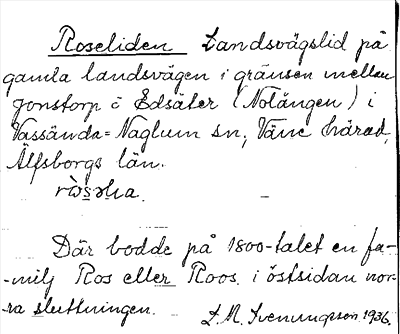 Roseliden Landsvägslid på
gamla landsvägen i gränsen mellan
Jonstorp o Edsäter (Nolängen) i
Vassända=Naglum sn, Väne härad,
Älfsborgs län.
Där bodde på 1800-talet en fa-
-milj Ros eller Roos. i östsidan nor-
ra sluttningen. L. M. Svenungsson 1936.